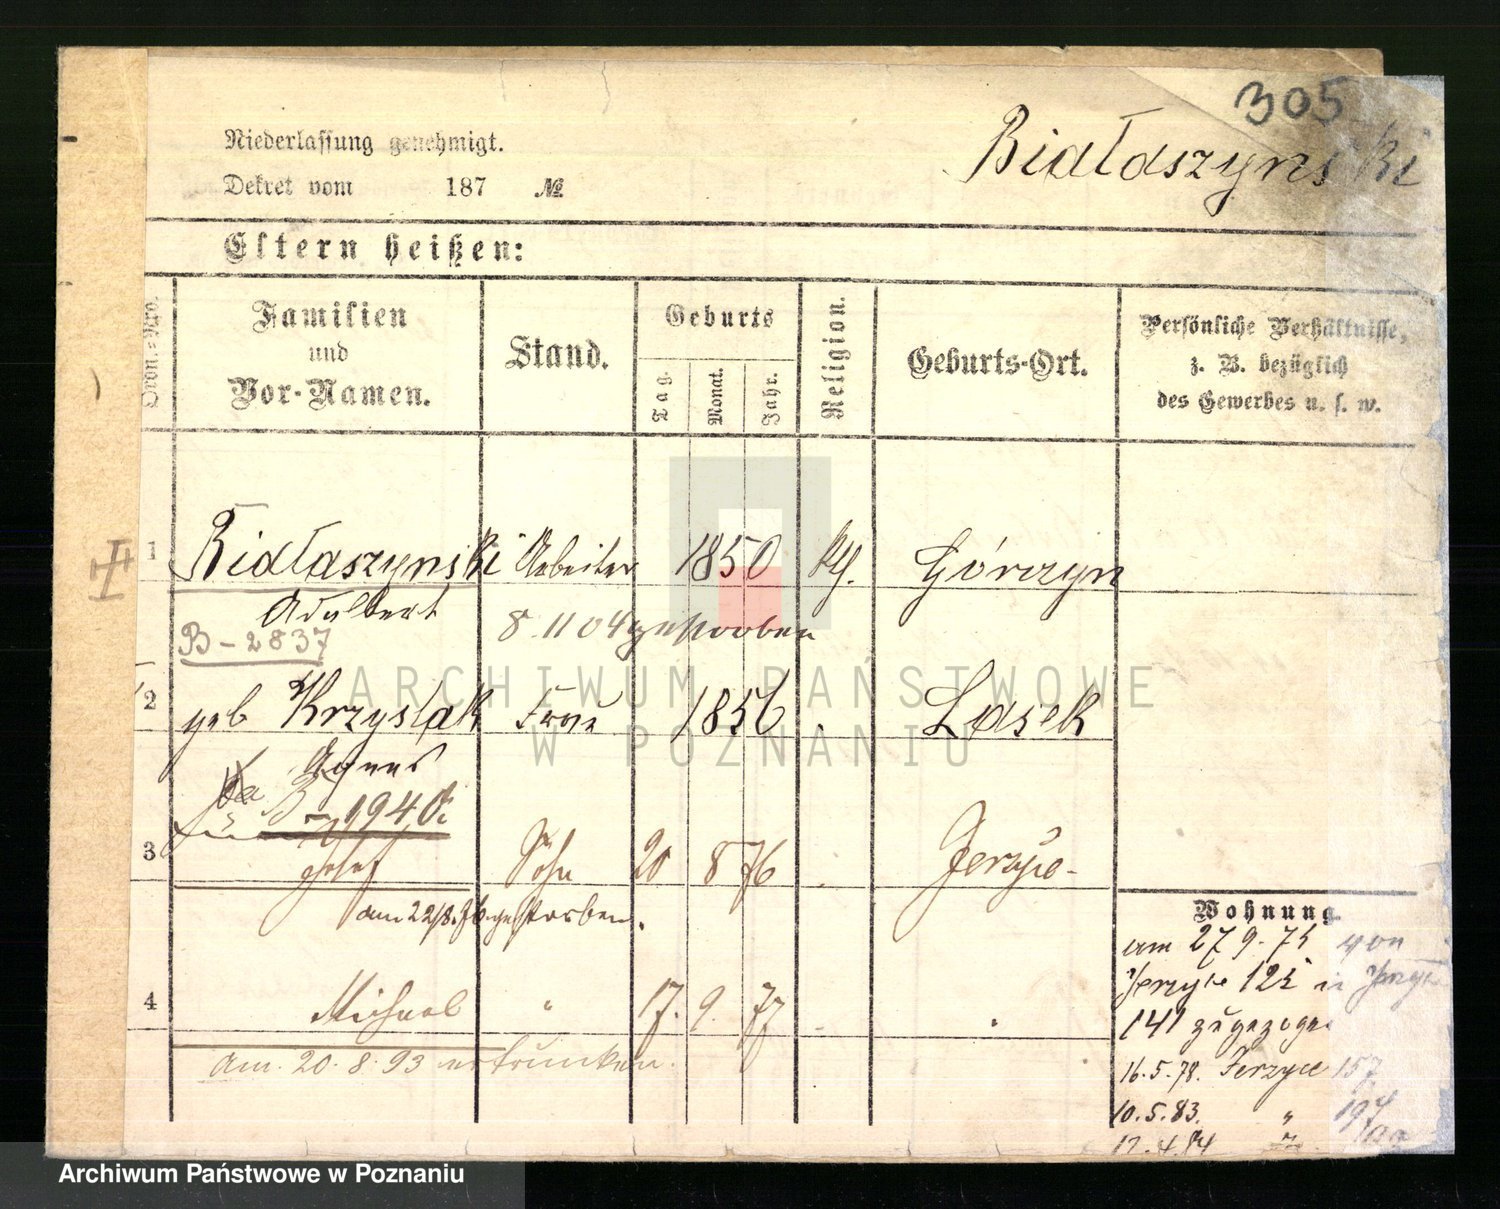 305
Białaszynski
Niederlassung genehmigt.
Dekret vom 187 №
Eltern heißen:
Ordn.=Nro.
Familien und Vor-Namen.
Stand.
Geburts
Tag. Monat. Jahr.
Religion.
Geburts-Ort.
Persönliche Verhältnisse,
z. B. bezüglich
des Gewerbes u. s. w.
1 Białaszynski Arbeiter 1850 Górczyn
Adalbert 8 11 04 gestorben
B - 2837
2 geb Krzyslak Frau 1856 Lasek
Agnes
B - 1940
3 Josef Sohn 20 8 76 Jerzyce
am 22/8.76 gestorben.
4 Michael " 17. 9. 77
am. 20. 8. 93 ertrunken.
Wohnung
am 27 9. 75 von
Jerzyce 125 in Jerzyce
141 zugezogen
16.5.78. Jerzyce 157
10.5.83. " 194
17.4.84 "
ARCHIWUM PAŃSTWOWE
W POZNANIU
Archiwum Państwowe w Poznaniu